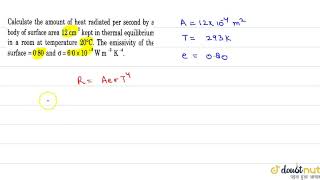 Calculate the amount of heat radiated per second by a
body of surface area 12 cm² kept in thermal equilibrium
in a room at temperature 20°C. The emissivity of the
surface = 0.80 and σ = 6.0 × 10⁻⁸ W m⁻² K⁻⁴.
A = 12 × 10⁻⁴ m²
T = 293 K
e = 0.80
R = AeσT⁴
doubtnut